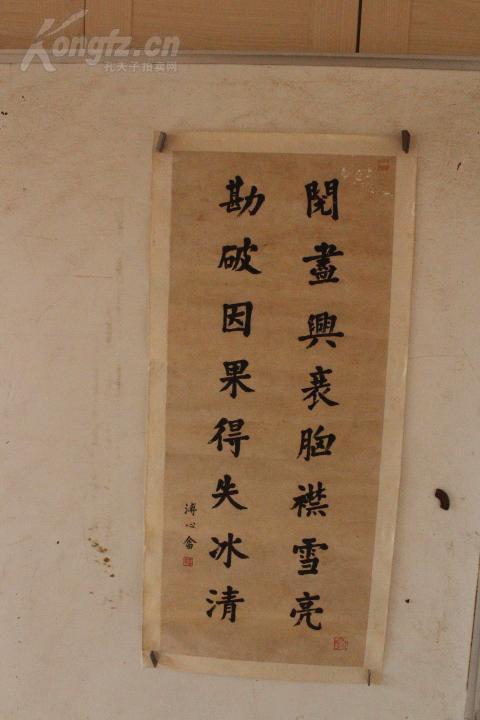 閱盡興衰胸襟雪亮
勘破因果得失冰清
溥心畬
Kongfz.cn
孔夫子拍卖网